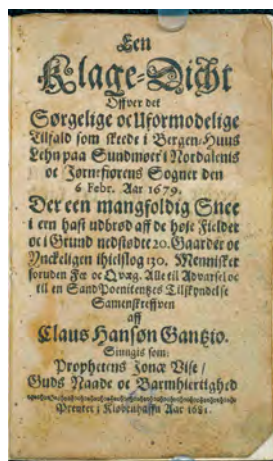 Een
Klage-Dicht
Offver det
Sørgelige oc Uformodelige
Tilfald som skede i Bergen-Huus
Lehn paa Sundmøer i Nordalens
oc Jørnefiorens Sogner den
6 Febr. Aar 1679.
Der een mangfoldig Snee
i een hast udbrød aff de høje Fielder
oc i Grund nedstødte 20. Gaarder oc
Ynckeligen ihielslog 130. Mennisker
foruden Fæ oc Qvæg. Alle til Advarsel oc
til en Sand Poenitentzes Tilskyndelse
Sammenskreffven
aff
Claus Hansøn Gantzio.
Siungis som:
Prophetens Jonæ Vise /
Guds Naade oc Barmhiertighed
Prentet i Kiøbenhaffn Aar 1681.